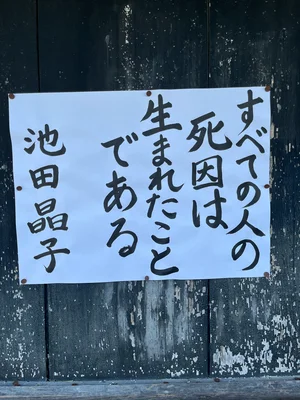 すべての人の
死因は
生まれたこと
である
池田晶子